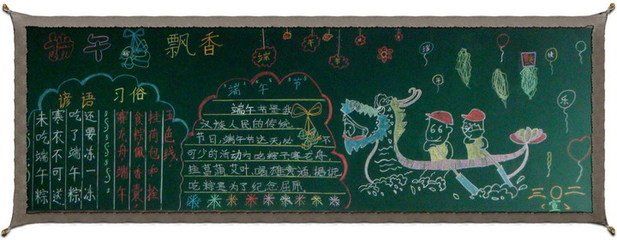 端午飘香
谚语 习俗
未吃端午粽
寒衣不可送
吃了端午粽
还要冻一冻
赛龙舟端午
食粽佩香囊
挂荷包和拴
五色线
"端"午"节"
端午节是我
汉族人民的传统
节日,端午节这天必
不可少的活动为吃粽子赛龙舟
挂菖蒲艾叶,喝雄黄酒,据说
吃粽是为了纪念屈原